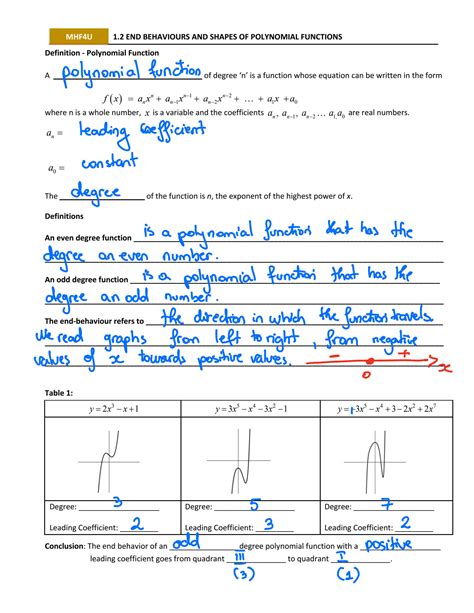 MHF4U 1.2 END BEHAVIOURS AND SHAPES OF POLYNOMIAL FUNCTIONS
Definition - Polynomial Function
A polynomial function of degree 'n' is a function whose equation can be written in the form
f(x) = aₙxⁿ + aₙ₋₁xⁿ⁻¹ + aₙ₋₂xⁿ⁻² + … + a₁x + a₀
where n is a whole number, x is a variable and the coefficients aₙ, aₙ₋₁, aₙ₋₂ … a₁ a₀ are real numbers.
aₙ = leading coefficient
a₀ = constant
The degree of the function is n, the exponent of the highest power of x.
Definitions
An even degree function is a polynomial function that has the
degree an even number.
An odd degree function is a polynomial function that has the
degree an odd number.
The end-behaviour refers to the direction in which the function travels
We read graphs from left to right, from negative
values of x towards positive values. − + x
0
Table 1:
y = 2x³ − x + 1 y = 3x⁵ − x⁴ − 3x² − 1 y = -3x⁵ − x⁴ + 3 − 2x² + 2x⁷
Degree: 3 Degree: 5 Degree: 7
Leading Coefficient: 2 Leading Coefficient: 3 Leading Coefficient: 2
Conclusion: The end behavior of an odd degree polynomial function with a positive
leading coefficient goes from quadrant III to quadrant I.
(3) (1)